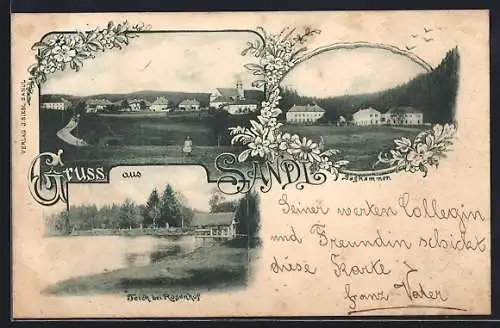 VERLAG J. RIEBL SANDL
Gruss aus SANDL
Jagdkammer
Teich bei Rosenhof
Seiner werten Collegin
und Freundin schickt
diese Karte
Franz Vater